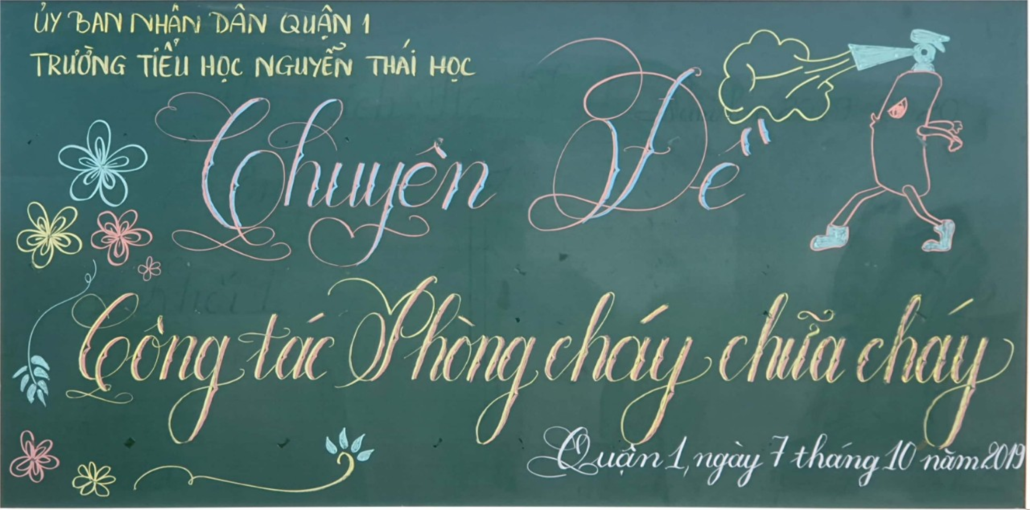 ỦY BAN NHÂN DÂN QUẬN 1
TRƯỜNG TIỂU HỌC NGUYỄN THÁI HỌC
Chuyên Đề
Công tác Phòng cháy chữa cháy
Quận 1, ngày 7 tháng 10 năm 2019